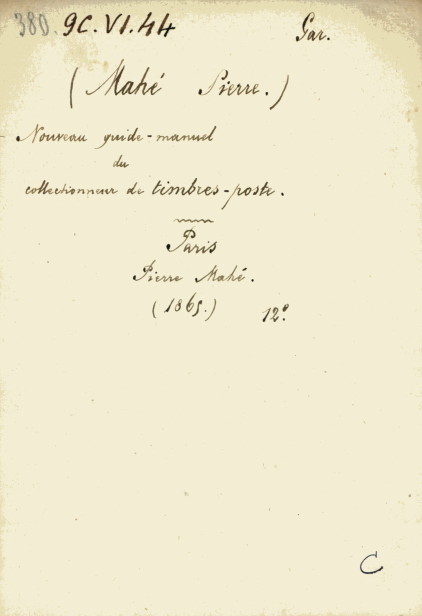 380. 9C.VI.44 Gar.
(Mahé Pierre.)
Nouveau guide-manuel
du
collectionneur de timbres-poste.
Paris
Pierre Mahé.
(1865.) 12º.
C